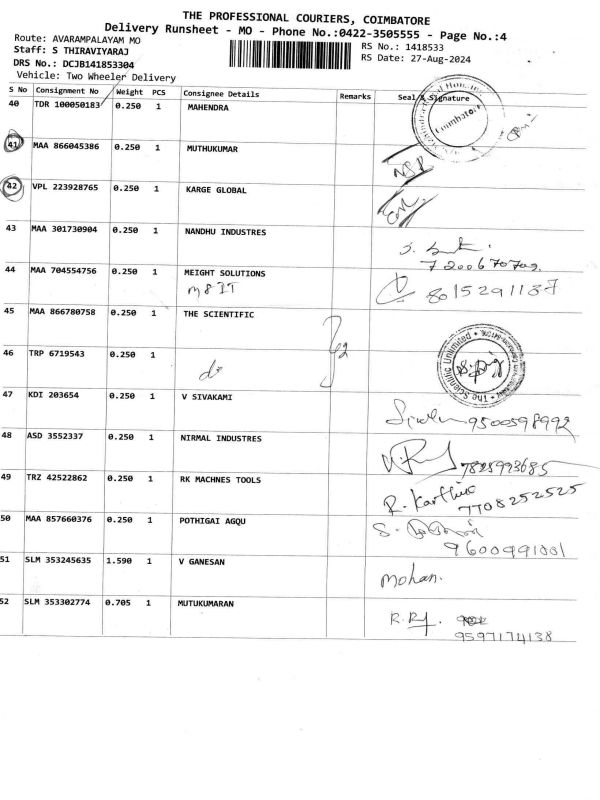 THE PROFESSIONAL COURIERS, COIMBATORE
Delivery Runsheet - MO - Phone No.:0422-3505555 - Page No.:4
Route: AVARAMPALAYAM MO
RS No.: 1418533
Staff: S THIRAVIYARAJ
RS Date: 27-Aug-2024
DRS No.: DCJB141853304
Vehicle: Two Wheeler Delivery
S No Consignment No Weight PCS Consignee Details Remarks Seal & Signature
40 TDR 100050183 0.250 1 MAHENDRA
Coimbatore
41 MAA 866045386 0.250 1 MUTHUKUMAR
42 VPL 223928765 0.250 1 KARGE GLOBAL
43 MAA 301730904 0.250 1 NANDHU INDUSTRES
7200670709
44 MAA 704554756 0.250 1 MEIGHT SOLUTIONS
M8IT
8015291137
45 MAA 866780758 0.250 1 THE SCIENTIFIC
The Scientific Unlimited
46 TRP 6719543 0.250 1
do
47 KDI 203654 0.250 1 V SIVAKAMI
9500598992
48 ASD 3552337 0.250 1 NIRMAL INDUSTRES
7825993685
49 TRZ 42522862 0.250 1 RK MACHNES TOOLS
R. Karthik
7708252525
50 MAA 857660376 0.250 1 POTHIGAI AGQU
9600991001
51 SLM 353245635 1.590 1 V GANESAN
Mohan.
52 SLM 353302774 0.705 1 MUTUKUMARAN
9597174138